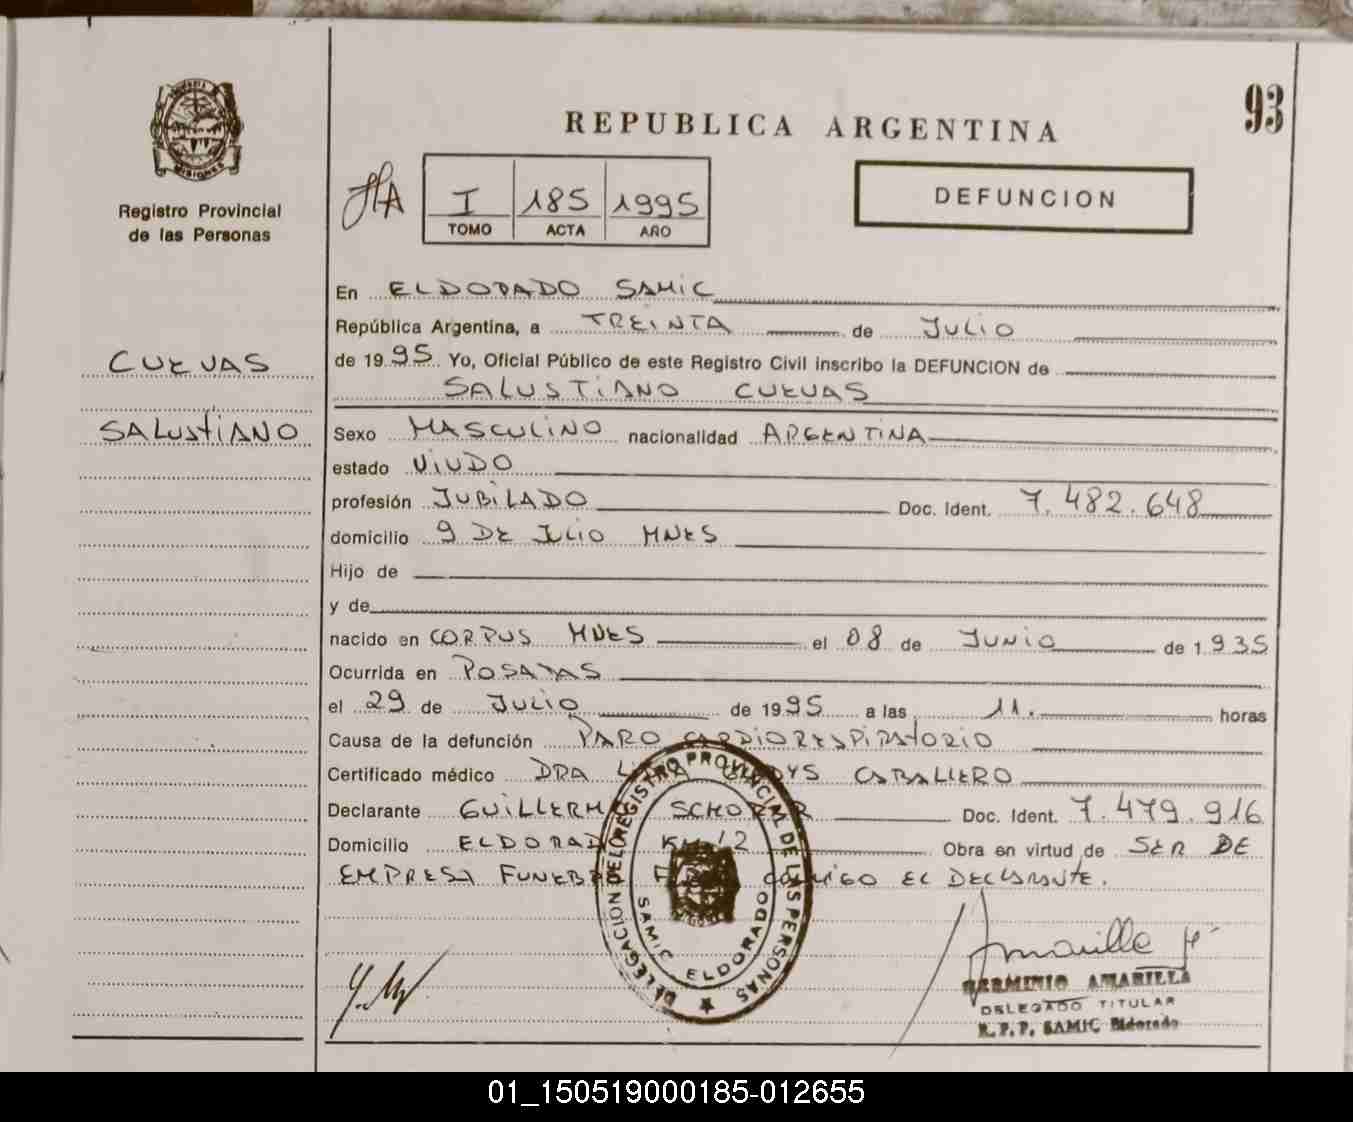 93
REPUBLICA ARGENTINA
MISIONES
Registro Provincial
de las Personas
I 185 1995
TOMO ACTA AÑO
DEFUNCION
CUEVAS
SALUSTIANO
En ELDORADO SAMIC
República Argentina, a TREINTA de JULIO
de 1995 Yo, Oficial Público de este Registro Civil inscribo la DEFUNCION de
SALUSTIANO CUEVAS
Sexo MASCULINO nacionalidad ARGENTINA
estado VIUDO
profesión JUBILADO Doc. Ident. 7.482.648
domicilio 9 DE JULIO MNES
Hijo de
y de
nacido en CORPUS MNES el 08 de JUNIO de 1935
Ocurrida en POSADAS
el 29 de JULIO de 1995 a las 11. horas
Causa de la defunción PARO CARDIORESPIRATORIO
Certificado médico DRA CABALLERO
Declarante Doc. Ident. 7.479.916
Domicilio ELDORADO KM 12 Obra en virtud de SER DE
EMPRESA FUNEBRE CONMIGO EL DECLARANTE.
DELEGACION DEL REGISTRO PROVINCIAL DE LAS PERSONAS
SAMIC ELDORADO
Amarilla H
HERMINIO AMARILLA
DELEGADO TITULAR
R.P.P. SAMIC Eldorado
01_150519000185-012655